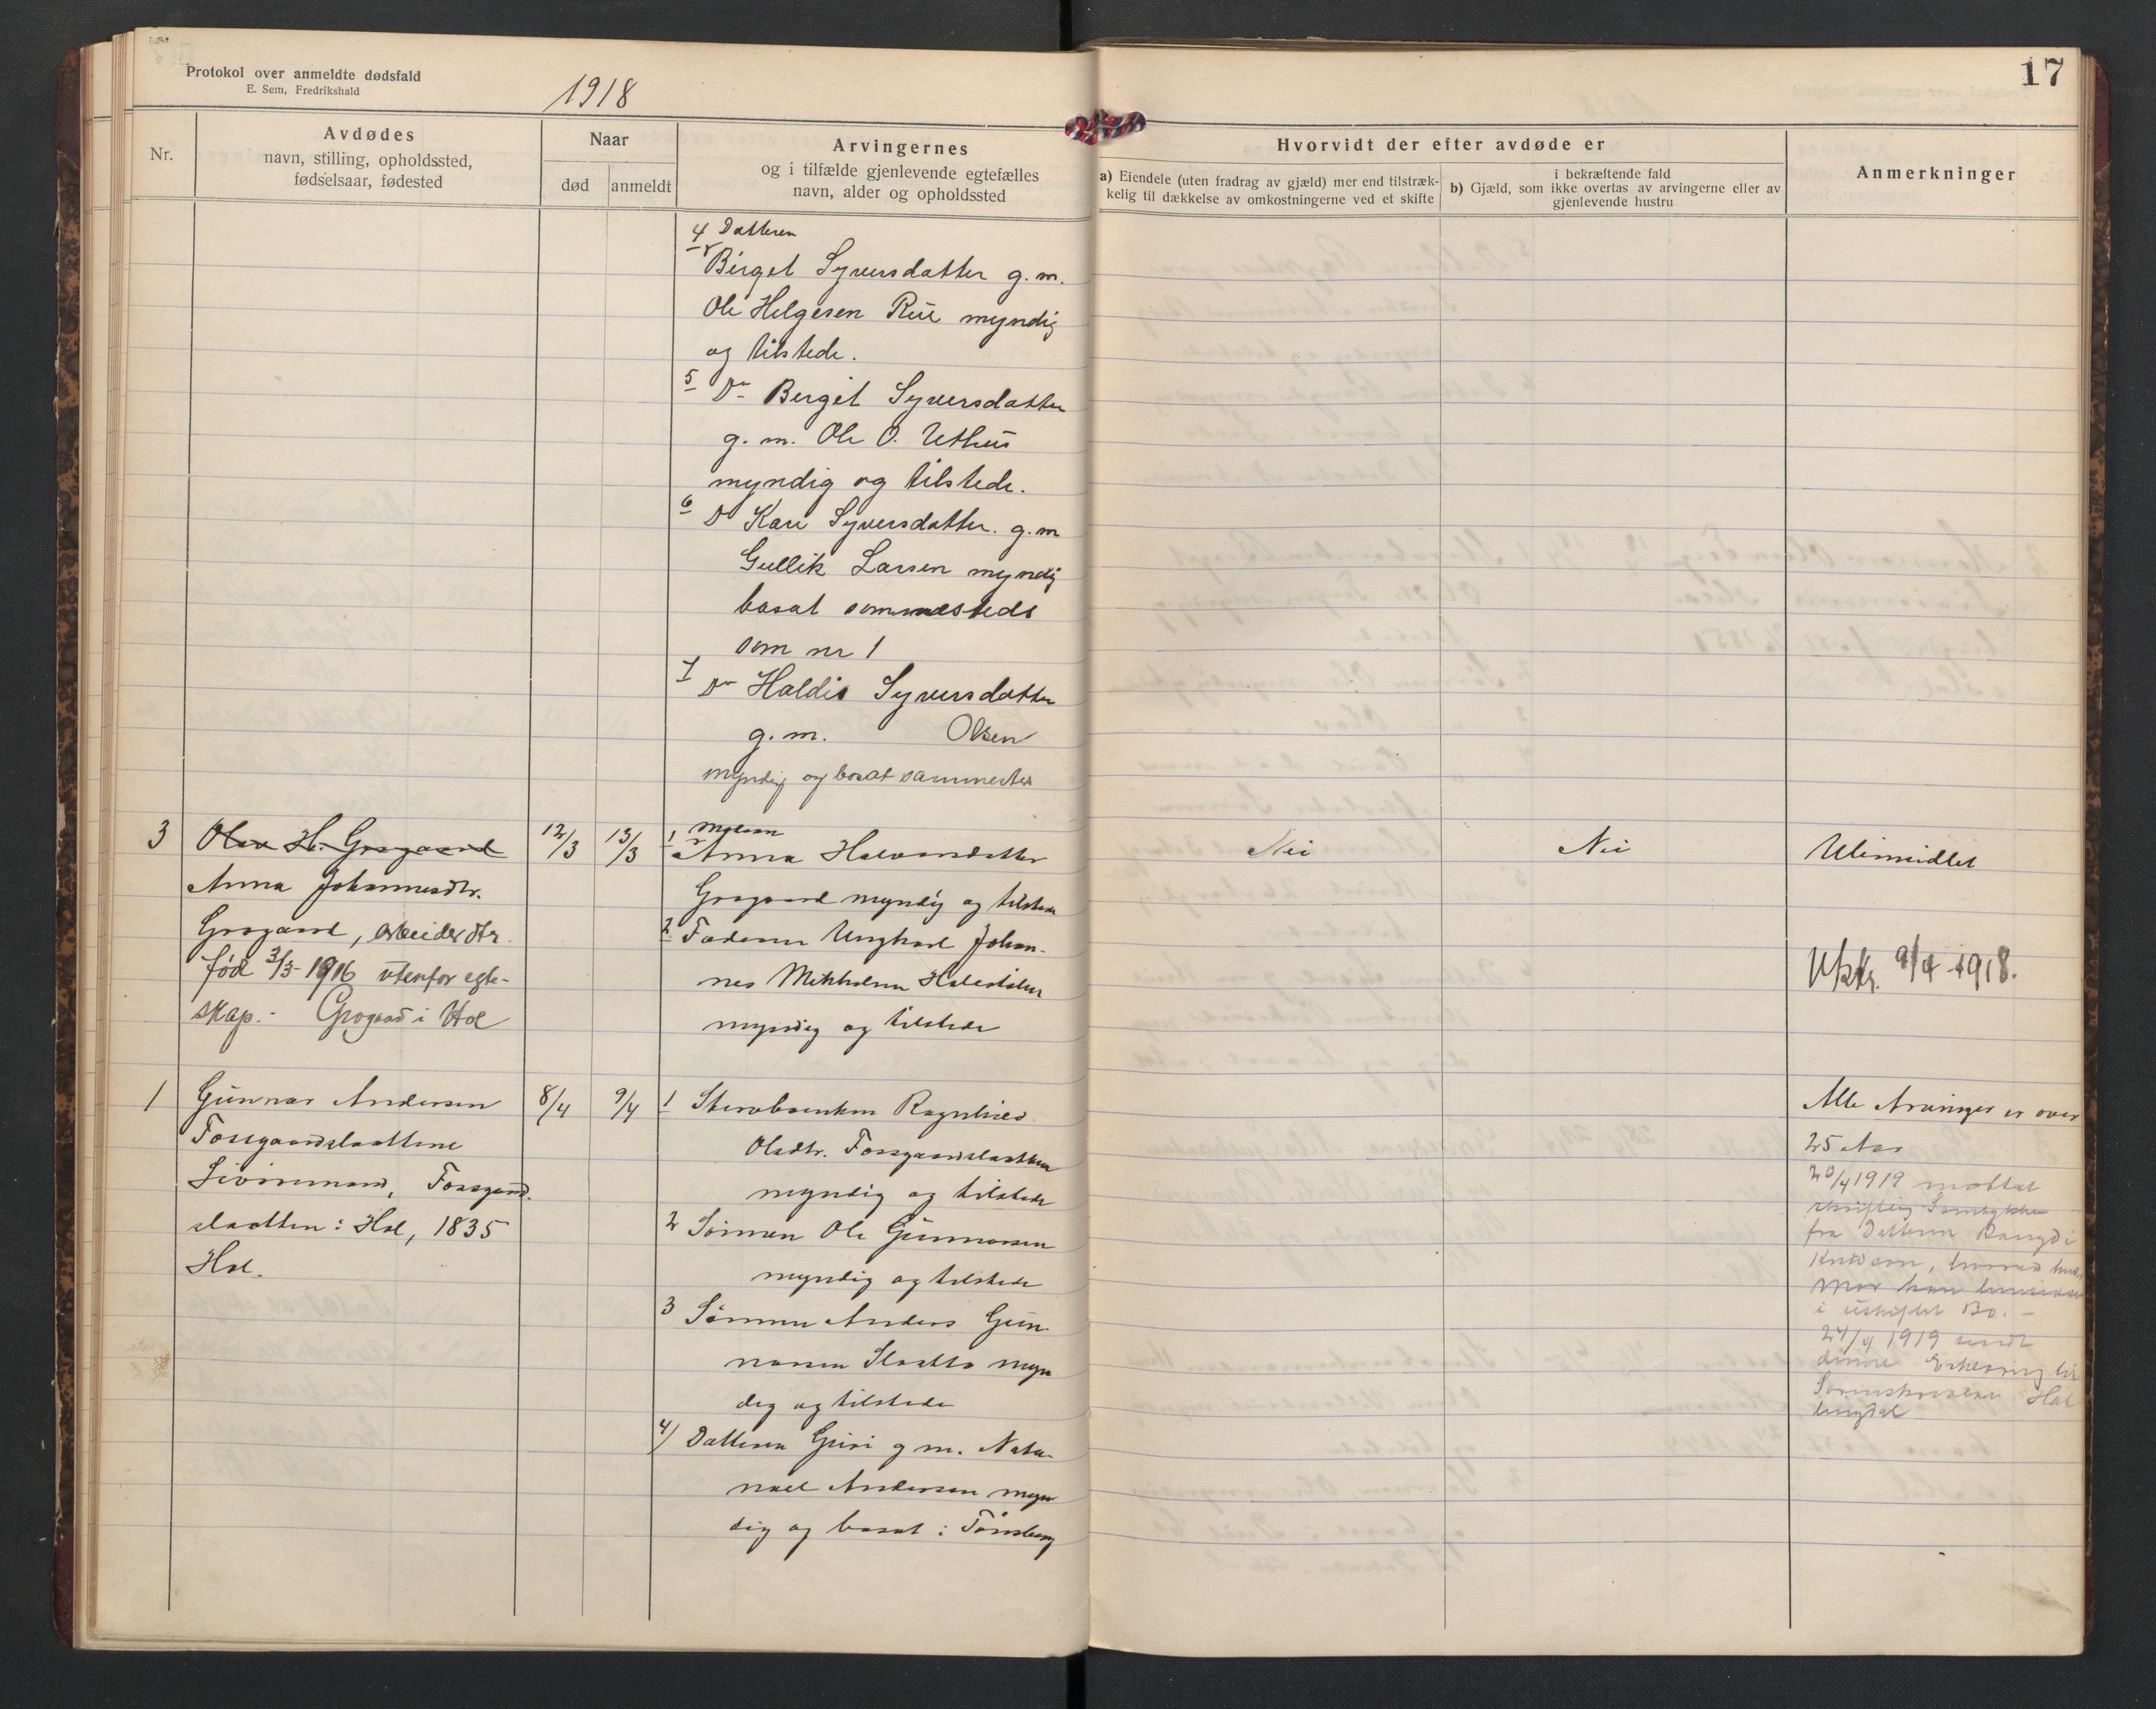 Protokol over anmeldte dødsfald
E. Sem, Fredrikshald
1918
17
Nr.
Avdødes
navn, stilling, opholdssted,
fødselsaar, fødested
Naar
død
anmeldt
Arvingernes
og i tilfælde gjenlevende egtefælles
navn, alder og opholdssted
Hvorvidt der efter avdøde er
a) Eiendele (uten fradrag av gjæld) mer end tilstræk-
kelig til dækkelse av omkostningerne ved et skifte
i bekræftende fald
b) Gjæld, som ikke overtas av arvingerne eller av
gjenlevende hustru
Anmerkninger
4 Datteren
Birget Syversdatter g. m.
Ole Helgesen Rue myndig
og tilstede.
5 Do Bergit Syversdatter
g. m. Ole O. Uthus
myndig og tilstede.
6 Do Kari Syversdatter. g. m
Gullik Larsen myndig
bosat sammesteds
som nr 1
7 Do Haldis Syversdatter
g. m. Olsen
myndig og bosat sammesteds
3
Olav H. Grogaard
Anna Johannesdtr.
Grogaard, arbeiderdtr.
fød 3/3-1916 utenfor egte-
skap.- Grogaard i Hol
12/3
13/3
1 Moren
Anna Halvorsdatter
Grogaard myndig og tilstede
2 Faderen Ungkarl Johan-
nes
myndig og tilstede
Nei
Nei
Ubemidlet
Utskr. 9/4 1918.
1
Gunnar Andersen
Fossgaardslaatten
Livøremand, Fossgaard-
slaatten i Hol, 1835
Hol.
8/4
9/4
1 Skrøbænken Ragnhild
Olsdtr. Fossgaardslaatten
myndig og tilstede
2 Sønnen Ole Gunnarsen
myndig og tilstede
3 Sønnen Anders Gun-
narsen Slaatto myn
dig og tilstede
4) Datteren Guri g m. Nata-
nael Andersen myn
dig og bosat i Tønsberg
Alle Arvinger er over
25 Aar
20/4 1919 mottat
skriftlig Samtykke
fra Datteren
Knudsen, hvorved
Mor kan hensidde
i uskiftet Bo. -
24/4 1919 sendt
denne Erklæring til
Sorenskriveren i Hal
lingdal